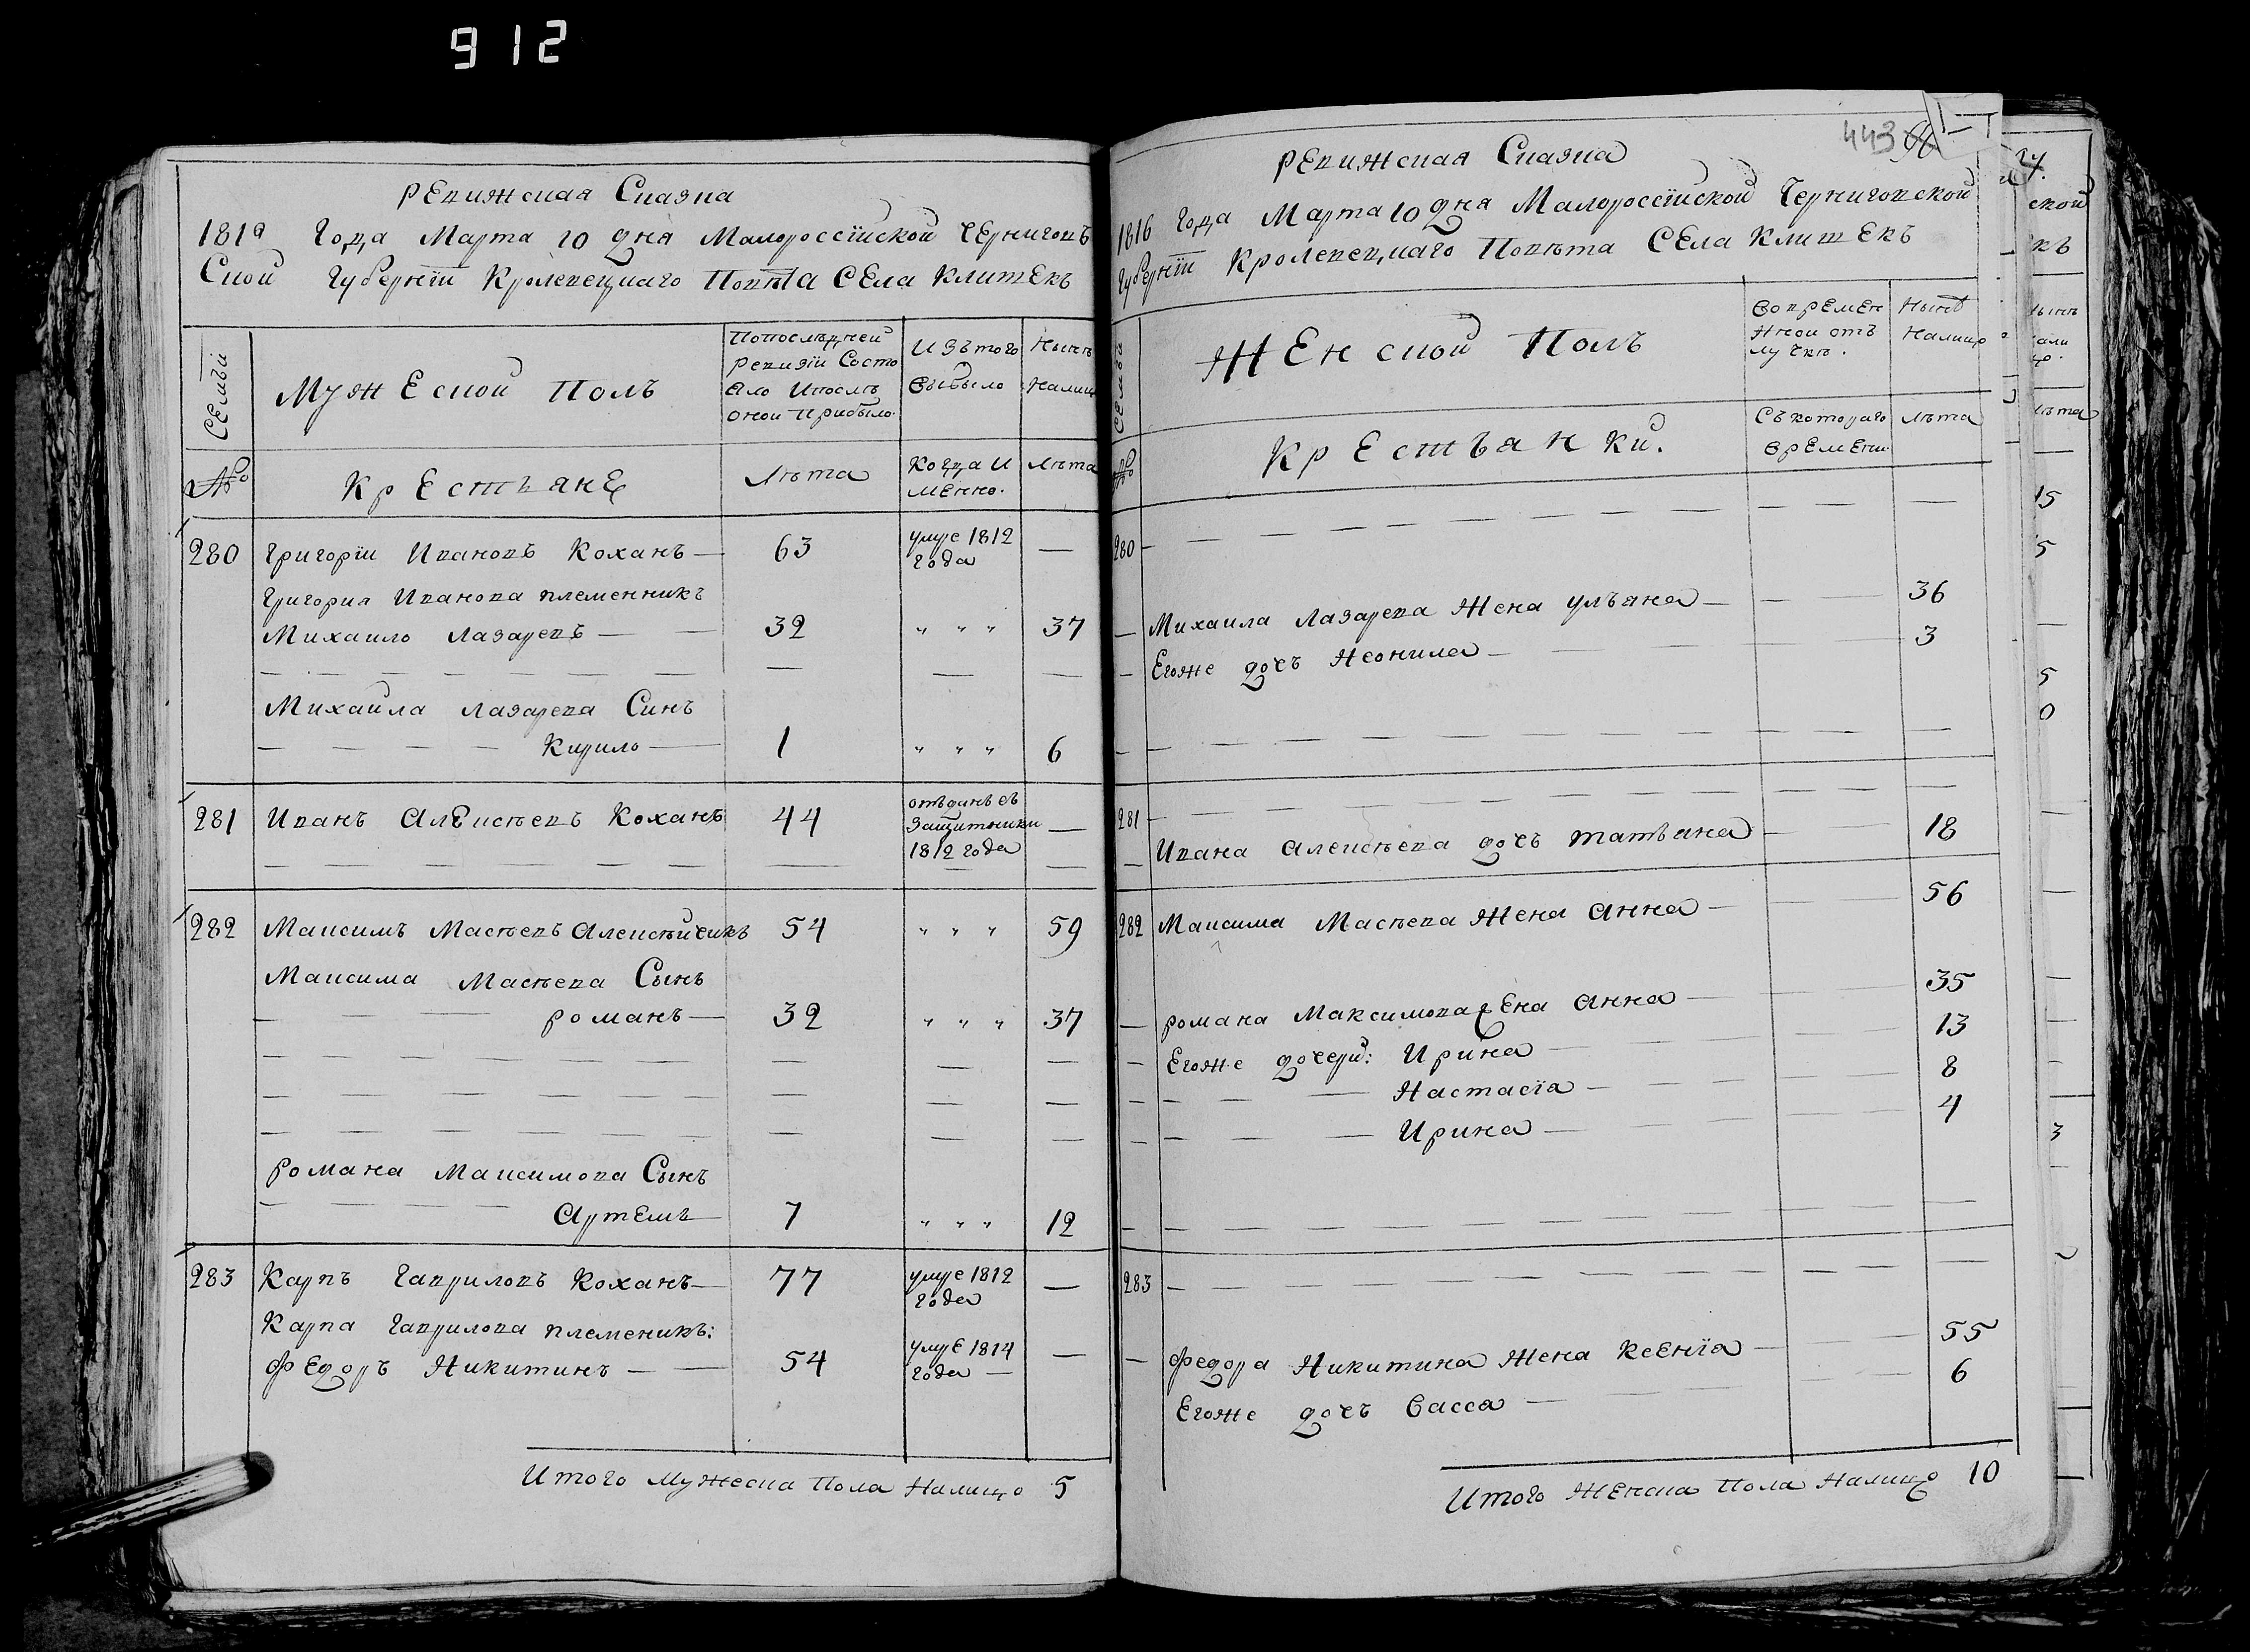 912
Ревижская Сказка
181 Года Марта 10 дня Малороссїйской Чернигов
Ской Губернїи Кролевецкаго Повѣта Села Клишекъ
Семьи
Мужеской Полъ
Попослѣдней
Ревизїи Состо
яло Ипослѣ
оной Прибыло.
Изътого
Выбыло
Нынѣ
Налицо
№
Крестьяне
Лѣта
Когда И
мѣнно.
Лѣта
280 Григорїи Ивановъ Коханъ — 63 умре 1812 —
года
Григория Иванова племенникъ
Михаило Лазаревъ — — 32 " " " 37
Михайла Лазарева Синъ
Кирило — 1 " " " 6
281 Иванъ Алексѣевъ Коханъ 44 отъдинъ съ —
Защитники
1812 года
282 Максимъ Масѣевъ Алексѣйчикъ 54 " " " 59
Максима Масѣева Сынъ
романъ — 32 " " " 37
романа Максимова Сынъ
Артемъ — 7 " " " 12
283 Карпъ Гавриловъ Коханъ — 77 умре 1812 —
года
Карпа Гаврилова племеникъ:
Федоръ Никитинъ — — 54 умре 1814 —
года —
Итого Мужеска Пола Налицо 5
443
Ревижская Сказка
1816 Года Марта 10 дня Малороссїйской Черниговской
Губернїи Кролевецкаго Повѣта Села Клишекъ
Семьи
Женской Полъ
Вовремен
ной отъ
лучкѣ.
Нынѣ
Налицо
№
Крестьянки.
Съкотораго
времени
Лѣта
280
Михаила Лазарева Жена Ульяна — 36
Егоже дочь Неонила — 3
281
Ивана Алексѣева дочь Татьяна — 18
282 Максима Масѣева Жена Анна — 56
романа Максимова жена Анна — 35
Егоже дочери: Ирина — 13
Настасїа — 8
Ирина — 4
283
Федора Никитина Жена Ксенїа — 55
Егоже дочь Васса — 6
Итого Женска Пола Налицо 10
ской
къ
15
5
5
0
3